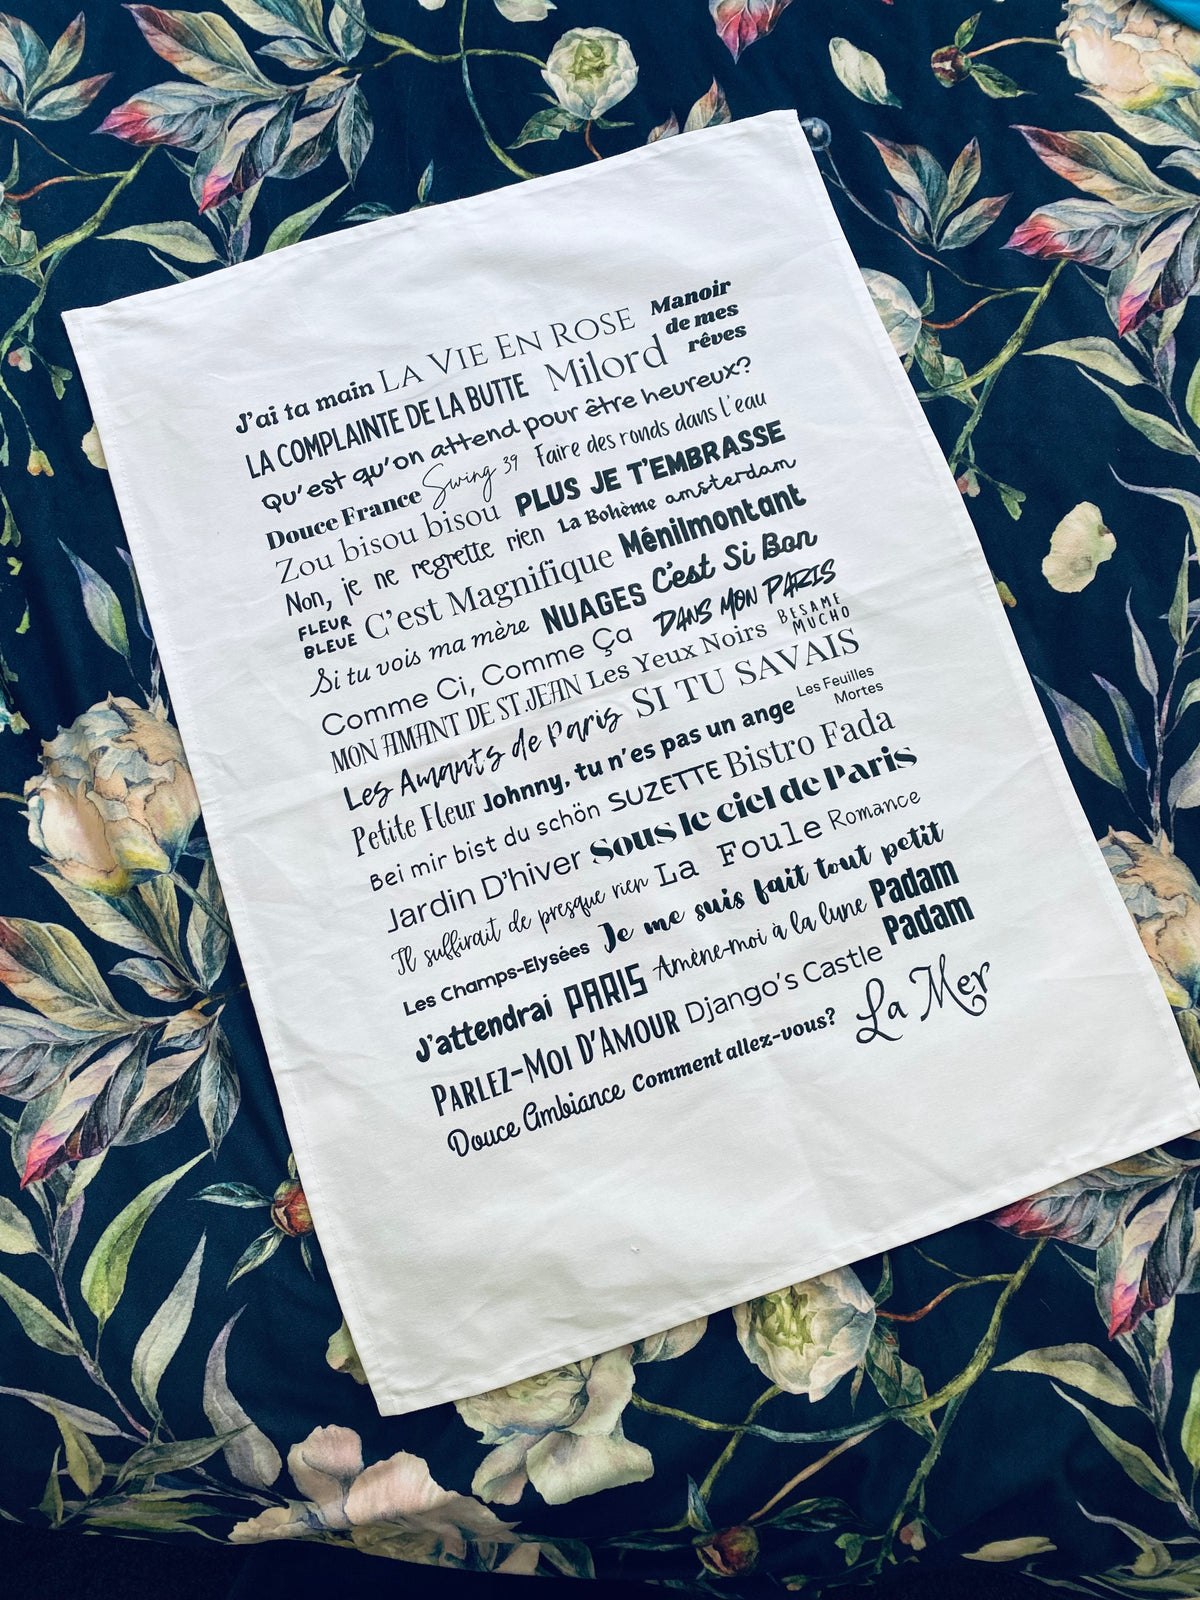 J'ai ta main LA VIE EN ROSE Manoir de mes rêves
LA COMPLAINTE DE LA BUTTE Milord
Qu'est qu'on attend pour être heureux?
Douce France Swing 39 Faire des ronds dans l'eau
Zou bisou bisou PLUS JE T'EMBRASSE
Non, je ne regrette rien La Bohème amsterdam
FLEUR BLEUE C'est Magnifique Ménilmontant
Si tu vois ma mère NUAGES C'est Si Bon
Comme Ci, Comme Ça DANS MON PARIS
MON AMANT DE ST JEAN Les Yeux Noirs BESAME MUCHO
Les Amants de Paris SI TU SAVAIS
Petite Fleur Johnny, tu n'es pas un ange Les Feuilles Mortes
Bei mir bist du schön SUZETTE Bistro Fada
Jardin D'hiver Sous le ciel de Paris
Il suffirait de presque rien La Foule Romance
Les Champs-Elysées Je me suis fait tout petit
J'attendrai PARIS Amène-moi à la lune Padam Padam
PARLEZ-MOI D'AMOUR Django's Castle
Douce Ambiance Comment allez-vous? La Mer